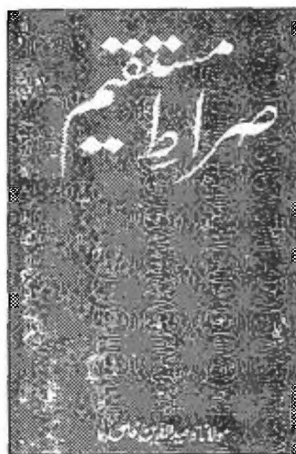 صراطِ مستقیم
مولانا وحیدالدین خاں